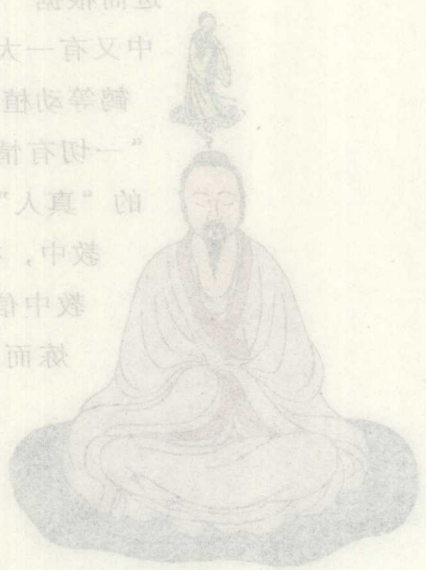 中又有一大
鹤等动植
“一切有情
的“真人”
教中，
教中信
炼而